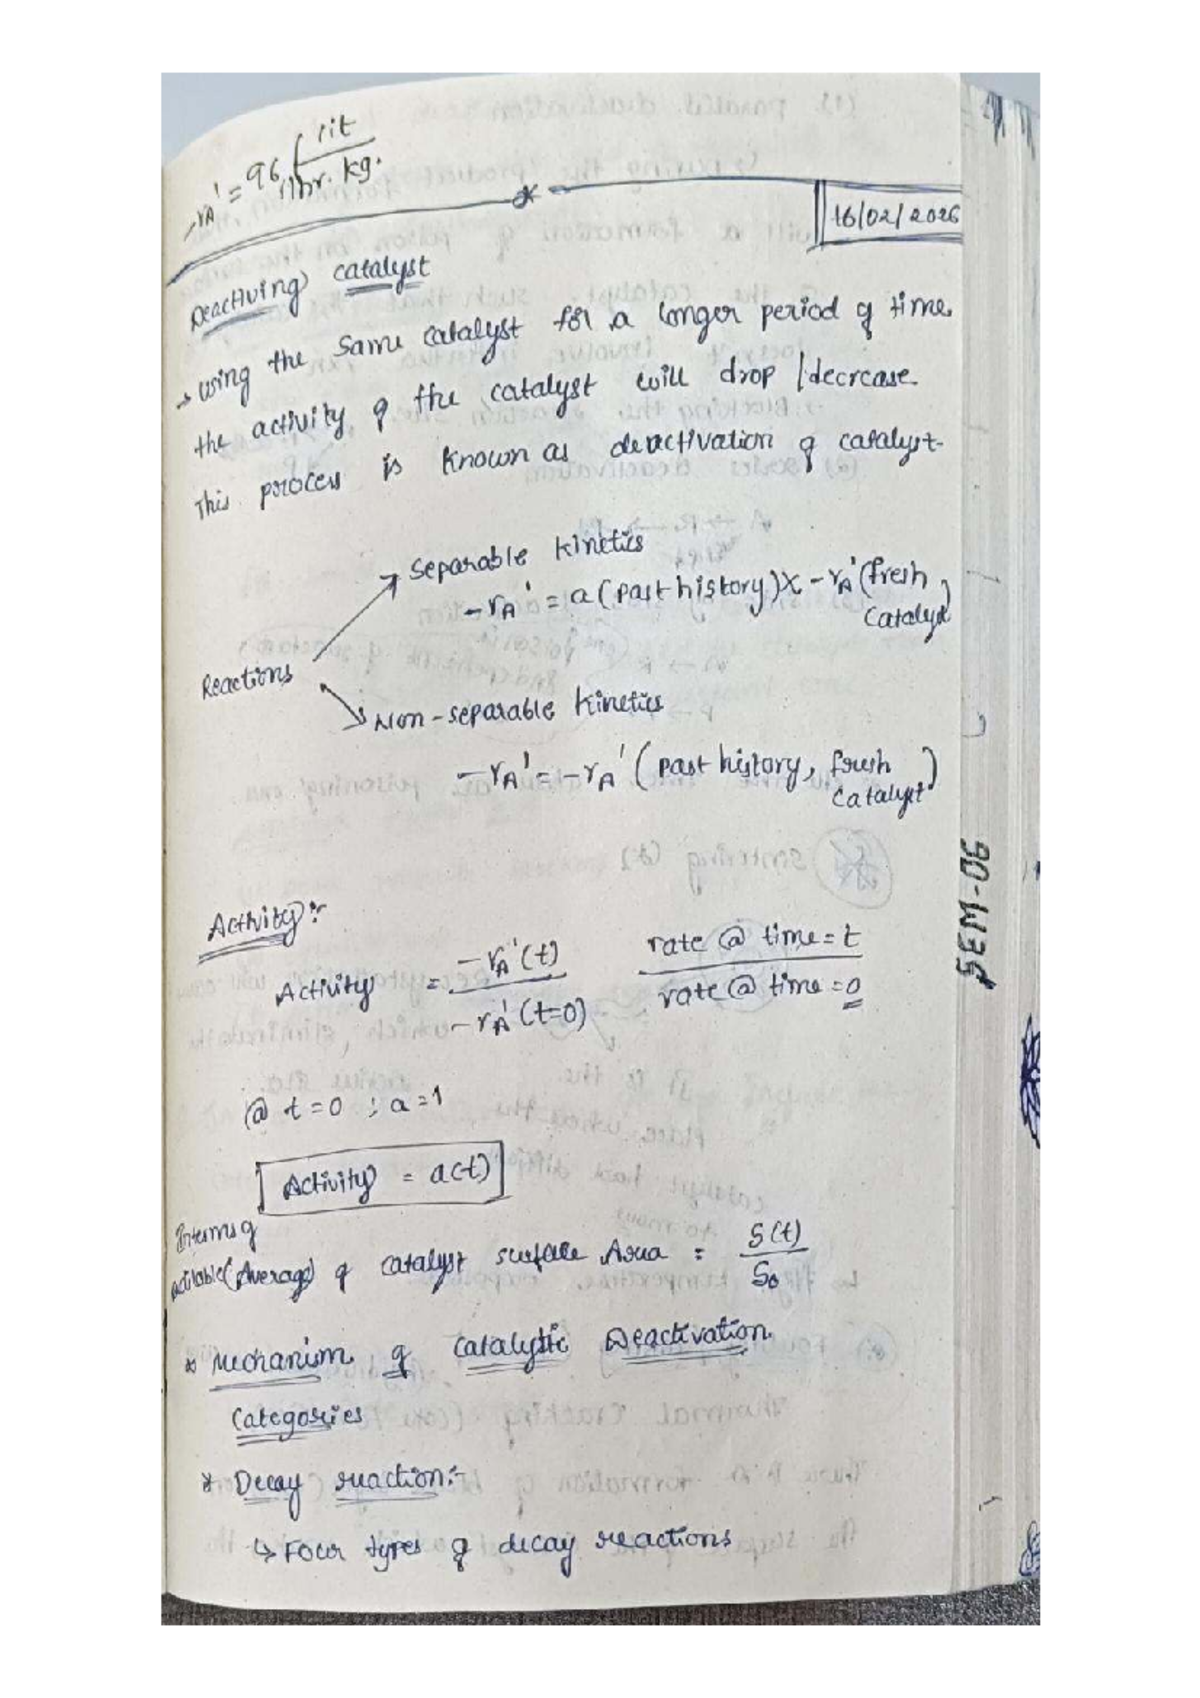 -rA' = 96 lit
hr. kg.
16/02/2026
Deactiving catalyst
→ using the same catalyst for a longer period of time
the activity of the catalyst will drop / decrease.
This process is known as deactivation of catalyst.
Separable kinetics
-rA' = a (past history) x -rA' (fresh catalyst)
Reactions
Non-separable kinetics
-rA' = -rA' (past history, fresh catalyst)
SEM-06
Activity:-
Activity = -rA'(t) / -rA'(t=0) rate @ time = t / rate @ time = 0
@ t=0 ; a=1
Activity = a(t)
Interms of
(Average) of catalyst surface Area = S(t) / S0
* Mechanism of catalytic Deactivation
Categories
* Decay reaction:-
↳ Four types of decay reactions